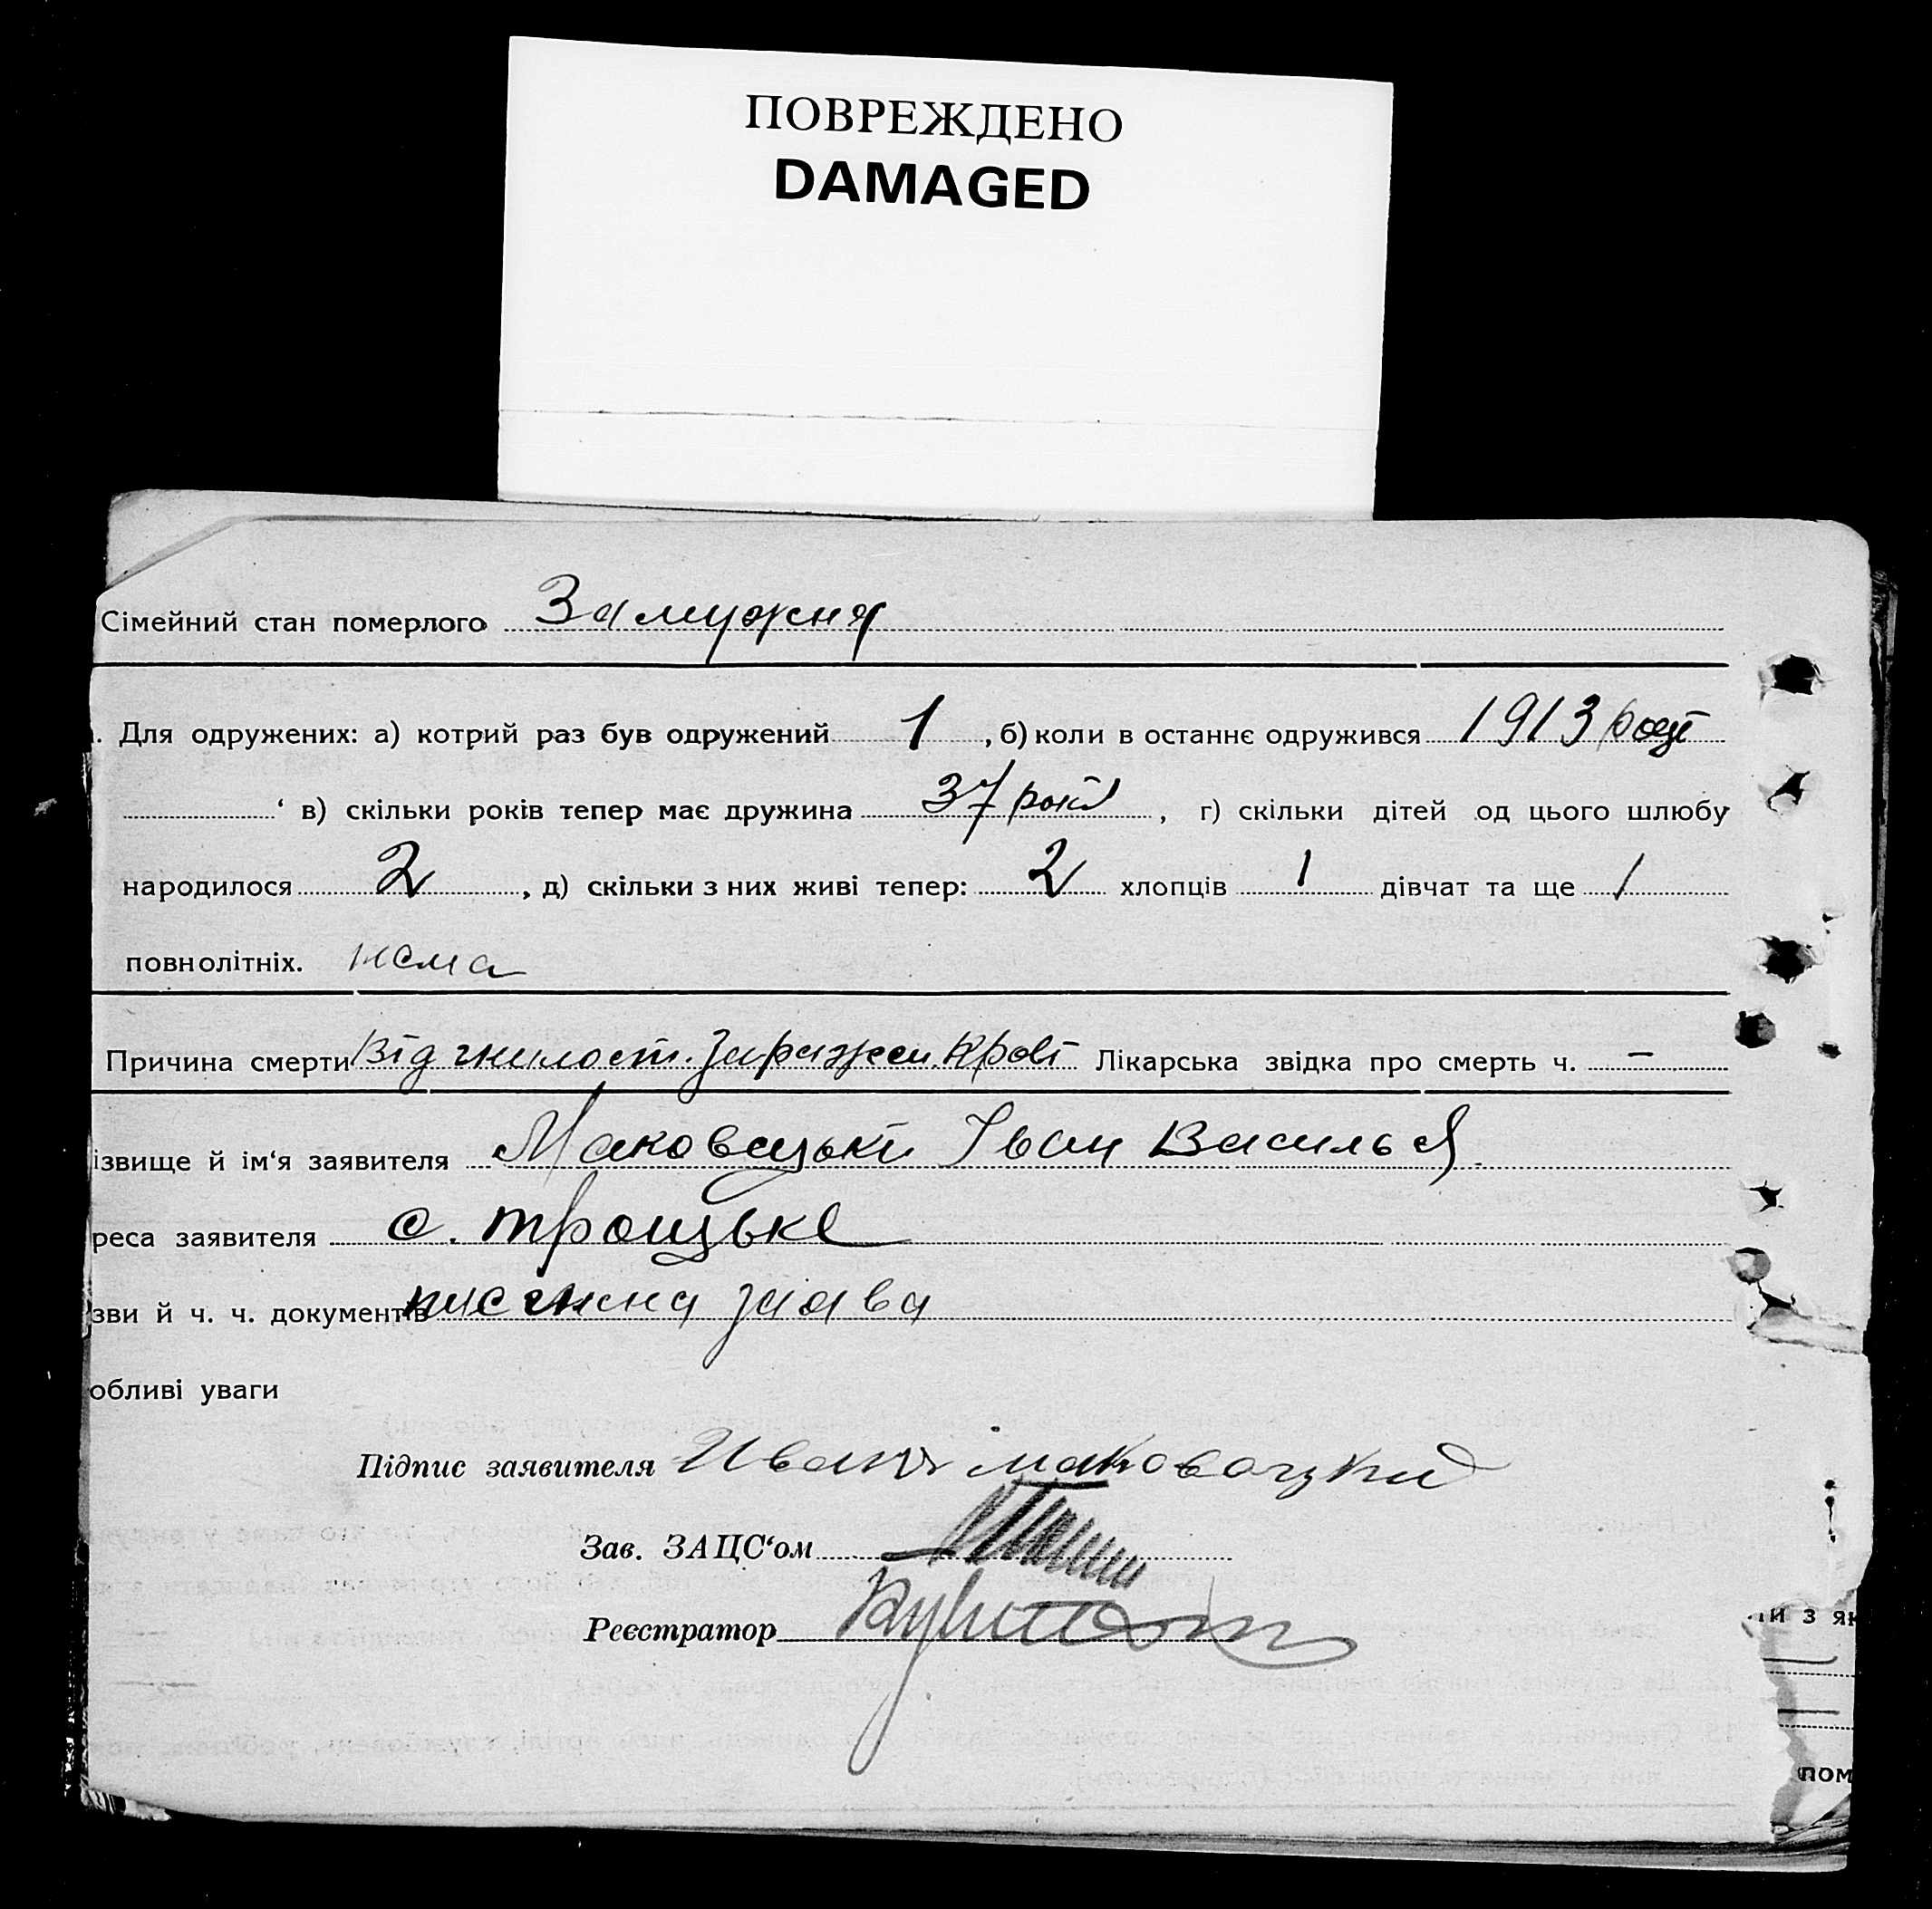 ПОВРЕЖДЕНО
DAMAGED
Сімейний стан померлого Замужня
. Для одружених: а) котрий раз був одружений 1 , б) коли в останнє одружився 1913 році
‘ в) скільки років тепер має дружина 37 років , г) скільки дітей од цього шлюбу
народилося 2 , д) скільки з них живі тепер: 2 хлопців 1 дівчат та ще 1
повнолітніх. нема
Причина смерти Від гнилост. заражен. крові Лікарська звідка про смерть ч. —
ізвище й ім‘я заявителя Маковецькі Іван Василь
реса заявителя с. Троцьке
зви й ч. ч. документів письмена заява
обливі уваги
Підпис заявителя Иван маковацкий
Зав. ЗАЦС‘ом
Реєстратор
ий з як
пом